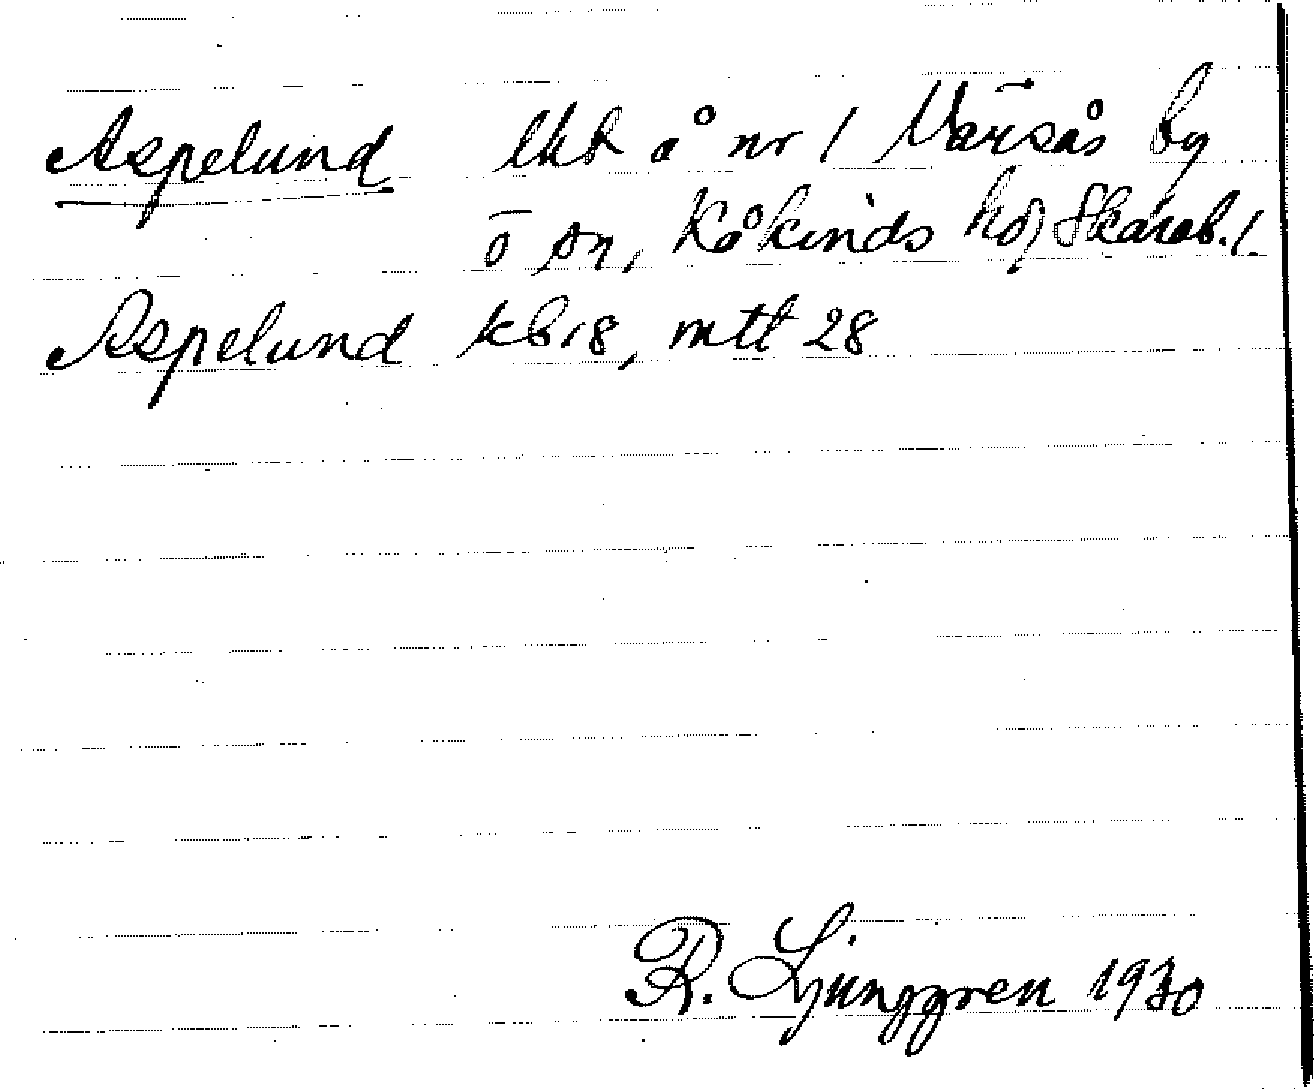 Aspelund lht å nr 1 Värsås by
o sn, Kåkinds hd, Skarab. l.
Aspelund kb 18, mtl 28
R. Ljunggren 1930